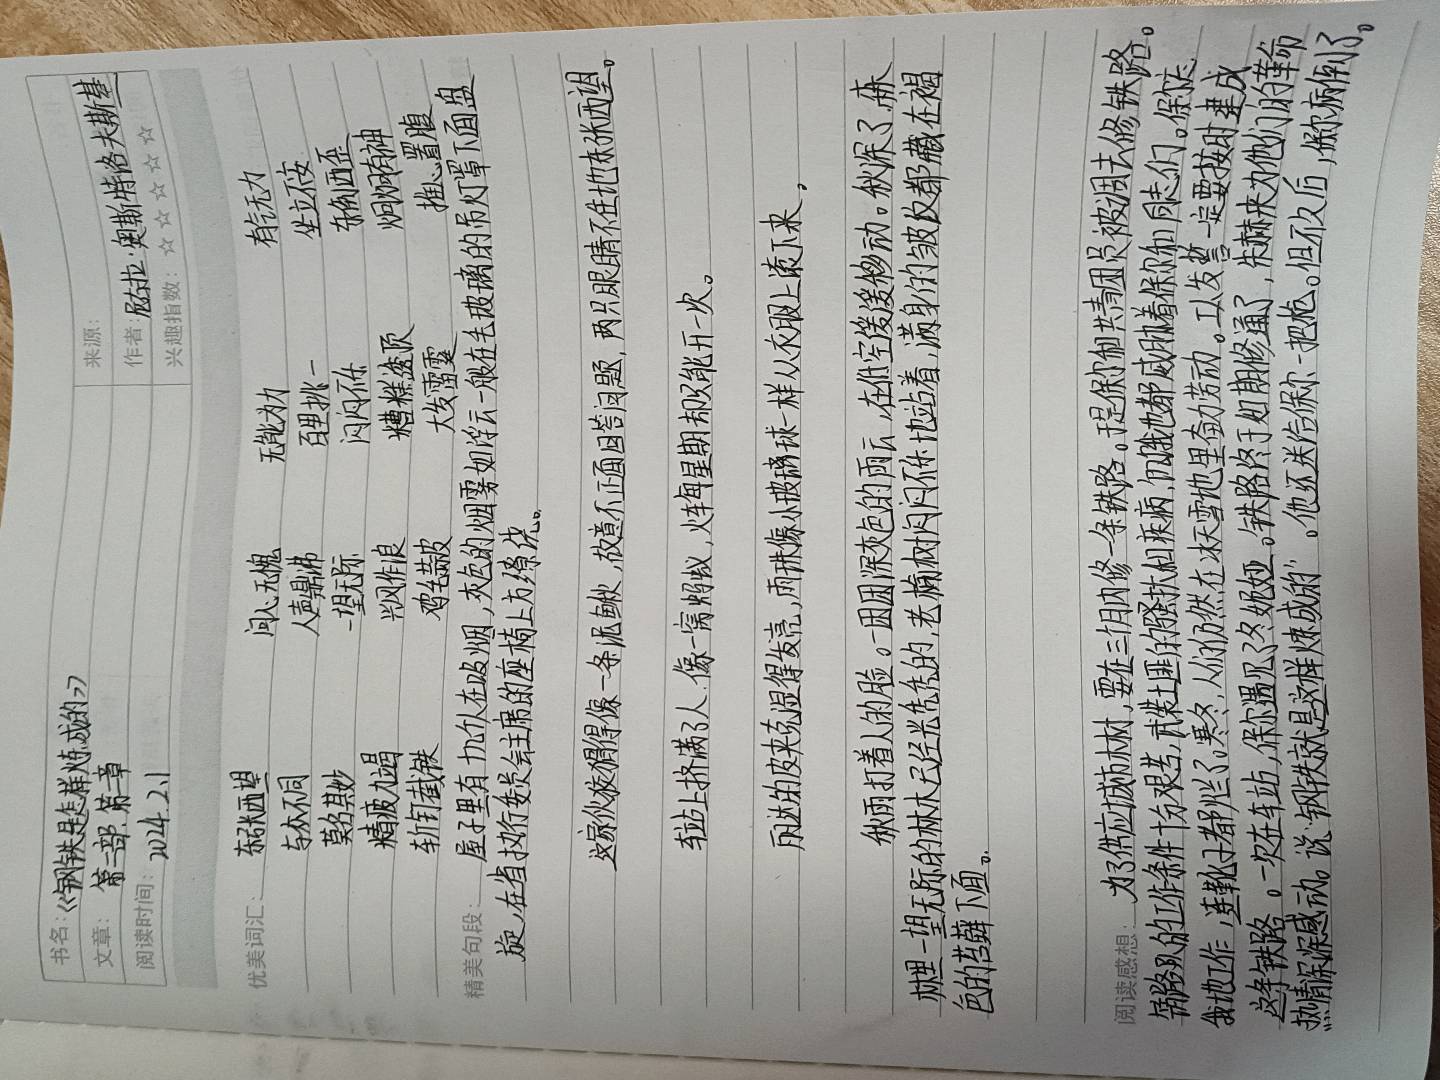 书名：《钢铁是怎样炼成的》
来源：
文章：第二部 第二章
作者：尼古拉·奥斯特洛夫斯基
阅读时间：2024.2.1
兴趣指数：☆☆☆☆☆
优美词汇： 东张西望 问心无愧 无能为力 有气无力
与众不同 人声鼎沸 百里挑一 坐立不安
莫名其妙 一望无际 闷闷不乐 东倒西歪
精疲力竭 兴风作浪 糟糕透顶
斩钉截铁 鸡毛蒜皮 大发雷霆 推心置腹
精美句段： 屋子里有十九个人在吸烟，灰色的烟雾如浮云一般在毛玻璃的吊灯罩下面盘
旋，在省执行委员会主席的座椅上方缭绕。
这家伙狡猾得像一条泥鳅，故意不正面回答问题，两只眼睛不住地东张西望。
车站上挤满了人，像一窝蚂蚁，火车每星期却只能开一次。
的皮夹克显得发亮，雨珠像小玻璃球一样从衣服上滚下来。
秋雨打着人的脸。一团团深灰色的雨云，在低空缓缓移动。秋深了，森
林里一望无际的林木已经光秃秃的，老榆树闷闷不乐地站着，满身的皱纹都藏在褐
色的苔藓下面。
阅读感想： 为了供应城市木材，要在三个月内修一条铁路。于是保尔和共青团员被调去修铁路。
筑路队的工作条件十分艰苦，武装土匪的骚扰和疾病，饥饿也都威胁着保尔和同志们。保尔
地工作，连靴子都烂了，寒冬，人们仍然在冰天雪地里奋力劳动。工人发誓一定要按时建成
这条铁路。一次在车站，保尔遇见了冬妮娅。铁路终于如期修通了，朱赫来为他们的革命
热情深深感动。说：“钢铁就是这样炼成的”。他还送给保尔一把枪。但不久后，保尔病倒了。